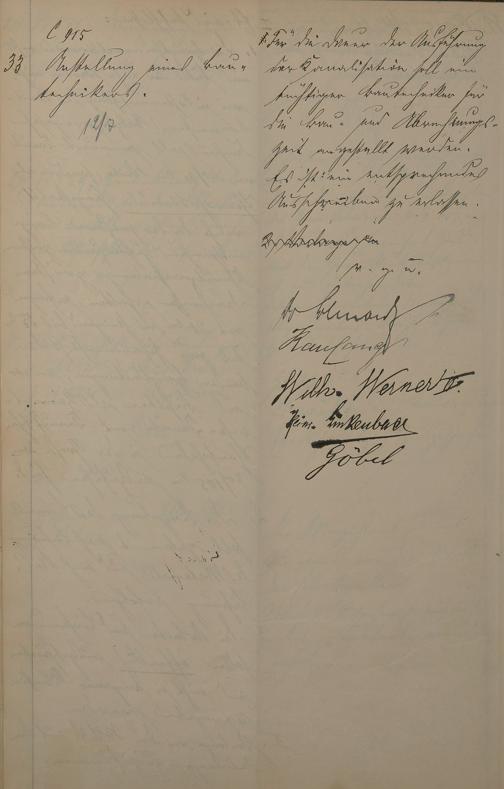 C 915
33 Anstellung eines Bau-
technikers.
12/7
1. Für die Dauer der Ausführung
der Kanalisation soll ein
tüchtiger Bautechniker für
die Bau- und Abrechnungs-
zeit angestellt werden.
Es ist ein entsprechendes
Ausschreiben zu erlassen.
v. g. u.
Wilh. Werner II.
Göbel